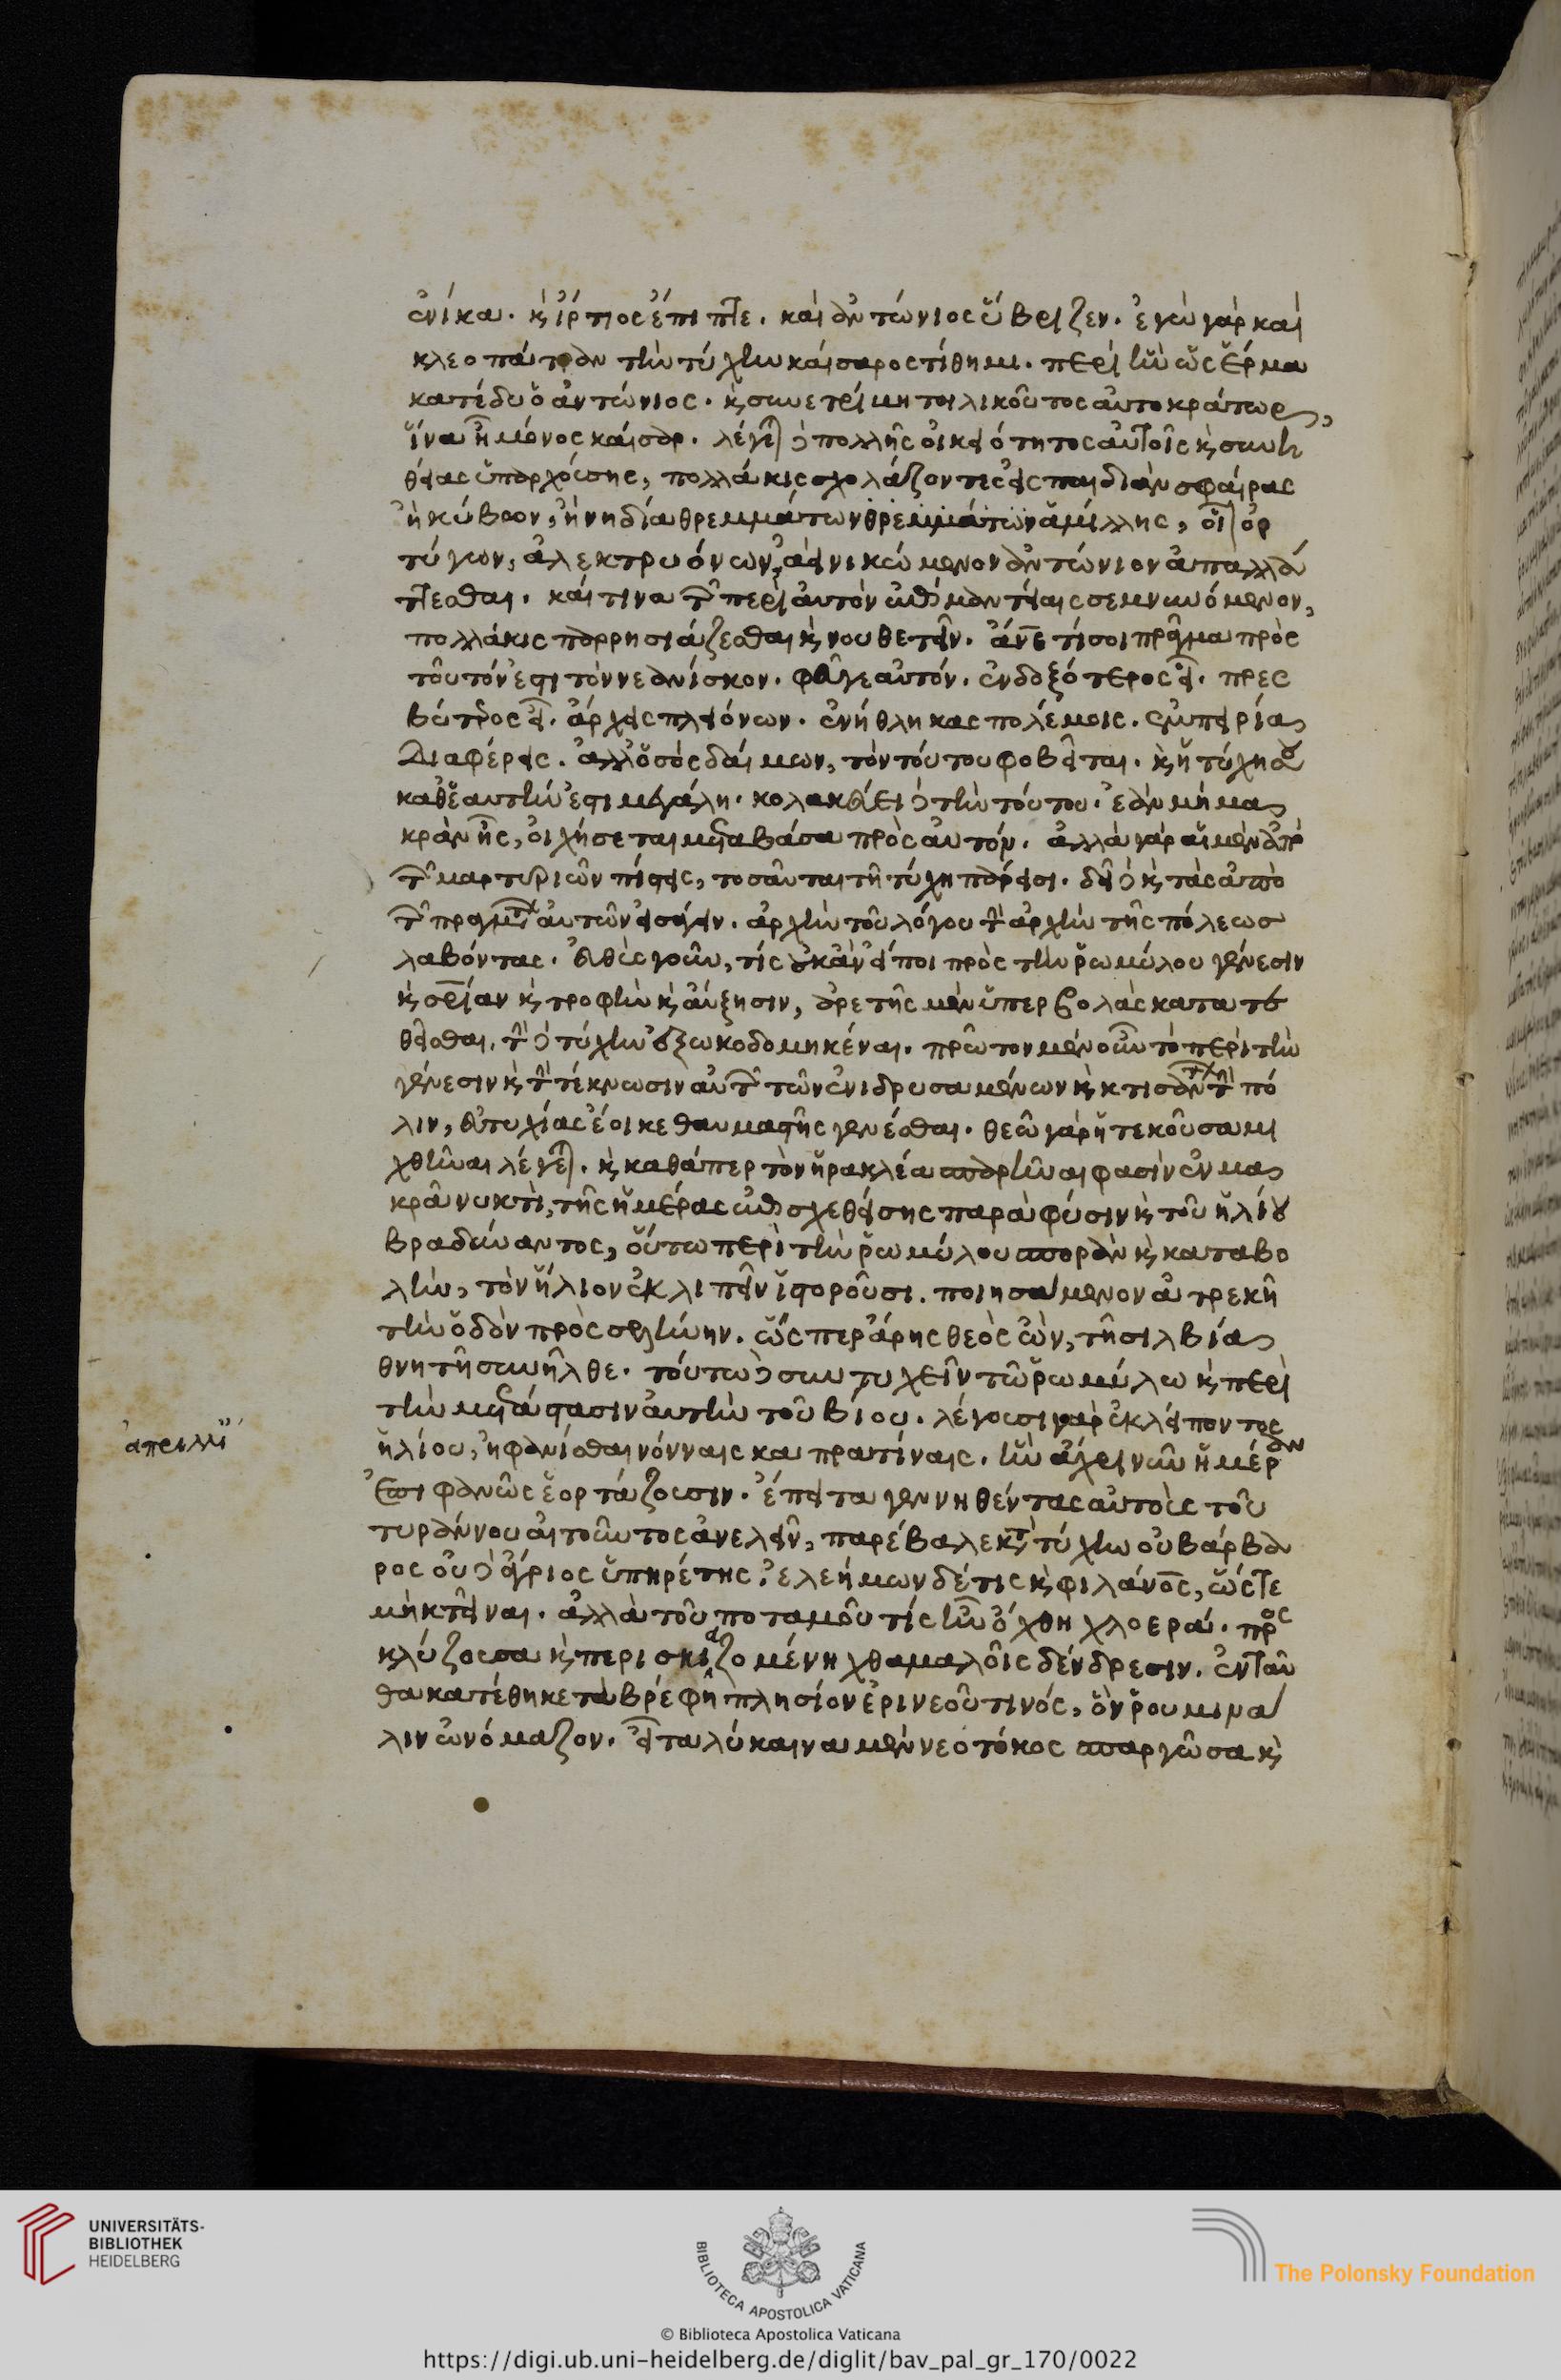 ἐνίκα. καὶ ἵρτιος ἔπιπτε. καὶ ἀντώνιος ὕβριζεν. ἐγὼ γὰρ καὶ
κλεοπάτραν τὴν τύχην καίσαρος τίθημι. περὶ ἣν ὡς ἕρμα
κατέδυ ὁ ἀντώνιος. καὶ συνετρίβη τηλικοῦτος αὐτοκράτωρ,
ἵνα ᾖ μόνος καῖσαρ. λέγεται δὲ πολλῆς οἰκειότητος αὐτοῖς καὶ συνη
θείας ὑπαρχούσης, πολλάκις σχολάζοντες εἰς παιδιὰν σφαίρας
ἢ κύβων, ἢ νὴ δία θρεμμάτων θρεμμάτων ἁμίλλης, οἷον ὀρ
τύγων, ἀλεκτρυόνων, ἀεὶ νικώμενον ἀντώνιον ἀπαλλά
ττεσθαι. καί τινα τῶν περὶ αὐτὸν ἐπὶ μαντείαις σεμνυνόμενον,
πολλάκις παρρησιάζεσθαι καὶ νουθετεῖν. ἄνθρωπε τί σοι πρᾶγμα πρὸς
τοῦτόν ἐστι τὸν νεανίσκον. φεῦγε αὐτόν. ἐνδοξότερος εἶ. πρεσ
βύτερος εἶ. ἄρχεις πλειόνων. ἐνήθληκας πολέμοις. ἐμπειρίᾳ
διαφέρεις. ἀλλ' ὁ σὸς δαίμων, τὸν τούτου φοβεῖται. καὶ ἡ τύχη σου
καθ' ἑαυτὴν ἐστὶ μεγάλη. κολακεύει δὲ τὴν τούτου. ἐὰν μὴ μα
κρὰν ᾖς, οἰχήσεται μεταβᾶσα πρὸς αὐτόν. ἀλλὰ γὰρ αἱ μὲν ἀπὸ
τῶν μαρτυριῶν πίστεις, τοσαῦται τῇ τύχῃ πάρεισι. δεῖ δὲ καὶ τὰς ἀπὸ
τῶν πραγμάτων αὐτῶν εἰσάγειν. ἀρχὴν τοῦ λόγου τὴν ἀρχὴν τῆς πόλεως
λαβόντας. εὐθὺς γοῦν, τίς οὐκ ἂν εἴποι πρὸς τὴν ῥωμύλου γένεσιν
καὶ σωτηρίαν καὶ τροφὴν καὶ αὔξησιν, ἀρετῆς μὲν ὑπερβολὰς κατατε
θεῖσθαι. τὴν δὲ τύχην ἐξωκοδομηκέναι. πρῶτον μὲν οὖν τὸ περὶ τὴν
γένεσιν καὶ τὴν τέκνωσιν αὐτὴν τῶν ἐνιδρυσαμένων καὶ κτισάντων τὴν πό
λιν, εὐτυχίας ἔοικε θαυμαστῆς γενέσθαι. θεῷ γὰρ ἡ τεκοῦσα μι
χθῆναι λέγεται. καὶ καθάπερ τὸν ἡρακλέα σπαρῆναι φασὶν ἐν μα
κρᾷ νυκτὶ, τῆς ἡμέρας ἐπισχεθείσης παρὰ φύσιν καὶ τοῦ ἡλίου
βραδύναντος, οὕτω περὶ τὴν ῥωμύλου σπορὰν καὶ καταβο
λὴν, τὸν ἥλιον ἐκλιπεῖν ἱστοροῦσι. ποιησάμενον ἀτρεκῆ
τὴν ὁδὸν πρὸς σελήνην. ὥσπερ ἄρης θεὸς ὢν, τῇ σιλβίᾳ
θνητῇ συνῆλθε. τοῦτο δὲ συντυχεῖν τῷ ῥωμύλῳ καὶ περὶ
τὴν μετάστασιν αὐτὴν τοῦ βίου. λέγουσι γὰρ ἐκλείποντος
ἀπειλλῇ
ἡλίου, ἠφανίσθαι νόνναις καπρατίναις. ἣν ἄχρι νῦν ἡμέραν
ἐπιφανῶς ἑορτάζουσιν. ἔπειτα γεννηθέντας αὐτοὺς τοῦ
τυράννου αἰτοῦντος ἀνελεῖν, παρέβαλε κατὰ τύχην οὐ βάρβα
ρος οὐδὲ ἄγριος ὑπηρέτης. ἐλεήμων δέ τις καὶ φιλάνθρωπος, ὥστε
μὴ κτεῖναι. ἀλλὰ τοῦ ποταμοῦ τίς ἦν ὄχθη χλοερά. προς
κλύζουσα καὶ περισκιαζομένη χθαμαλοῖς δένδρεσιν. ἐνταῦ
θα κατέθηκε τὰ βρέφη πλησίον ἐρινεοῦ τινός, ὃν ῥουμινα
λιν ὠνόμαζον. εἶτα λύκαινα μὲν νεοτόκος σπαργῶσα καὶ
UNIVERSITÄTS-
BIBLIOTHEK
HEIDELBERG
BIBLIOTECA APOSTOLICA VATICANA
The Polonsky Foundation
© Biblioteca Apostolica Vaticana
https://digi.ub.uni-heidelberg.de/diglit/bav_pal_gr_170/0022